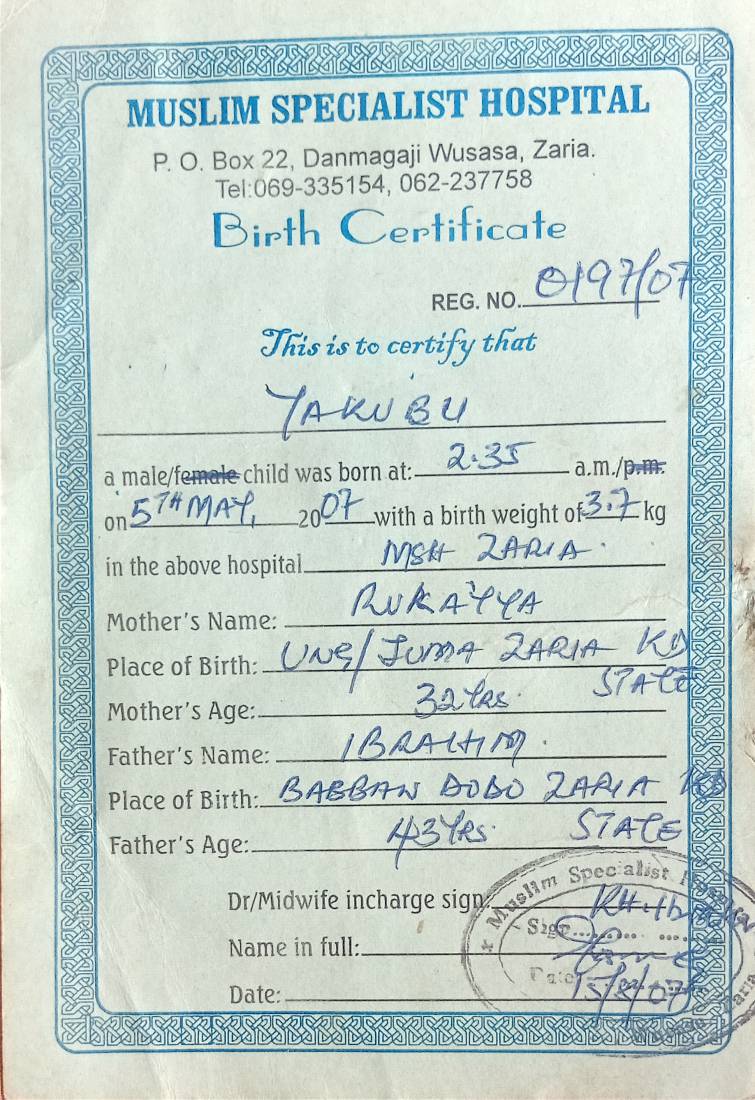 MUSLIM SPECIALIST HOSPITAL
P. O. Box 22, Danmagaji Wusasa, Zaria.
Tel:069-335154, 062-237758
Birth Certificate
REG. NO. 0197/07
This is to certify that
YAKUBU
a male/female child was born at: 2.35 a.m./p.m.
on 5TH MAY, 2007 with a birth weight of 3.7 kg
in the above hospital MSH ZARIA.
Mother's Name: RUKAYYA
Place of Birth: UNG/JUMA ZARIA KD
STATE
Mother's Age: 32 YRS.
Father's Name: IBRAHIM.
Place of Birth: BABBAN DODO ZARIA KD
Father's Age: 43 YRS. STATE
Dr/Midwife incharge sign.
Muslim Specialist
Sign
Name in full:
Date
Date: 15/8/07
Zaria